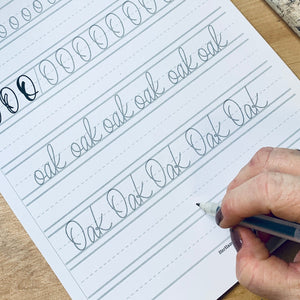 O O O O O O O O O O
oak oak oak oak oak oak
Oak Oak Oak Oak Oak